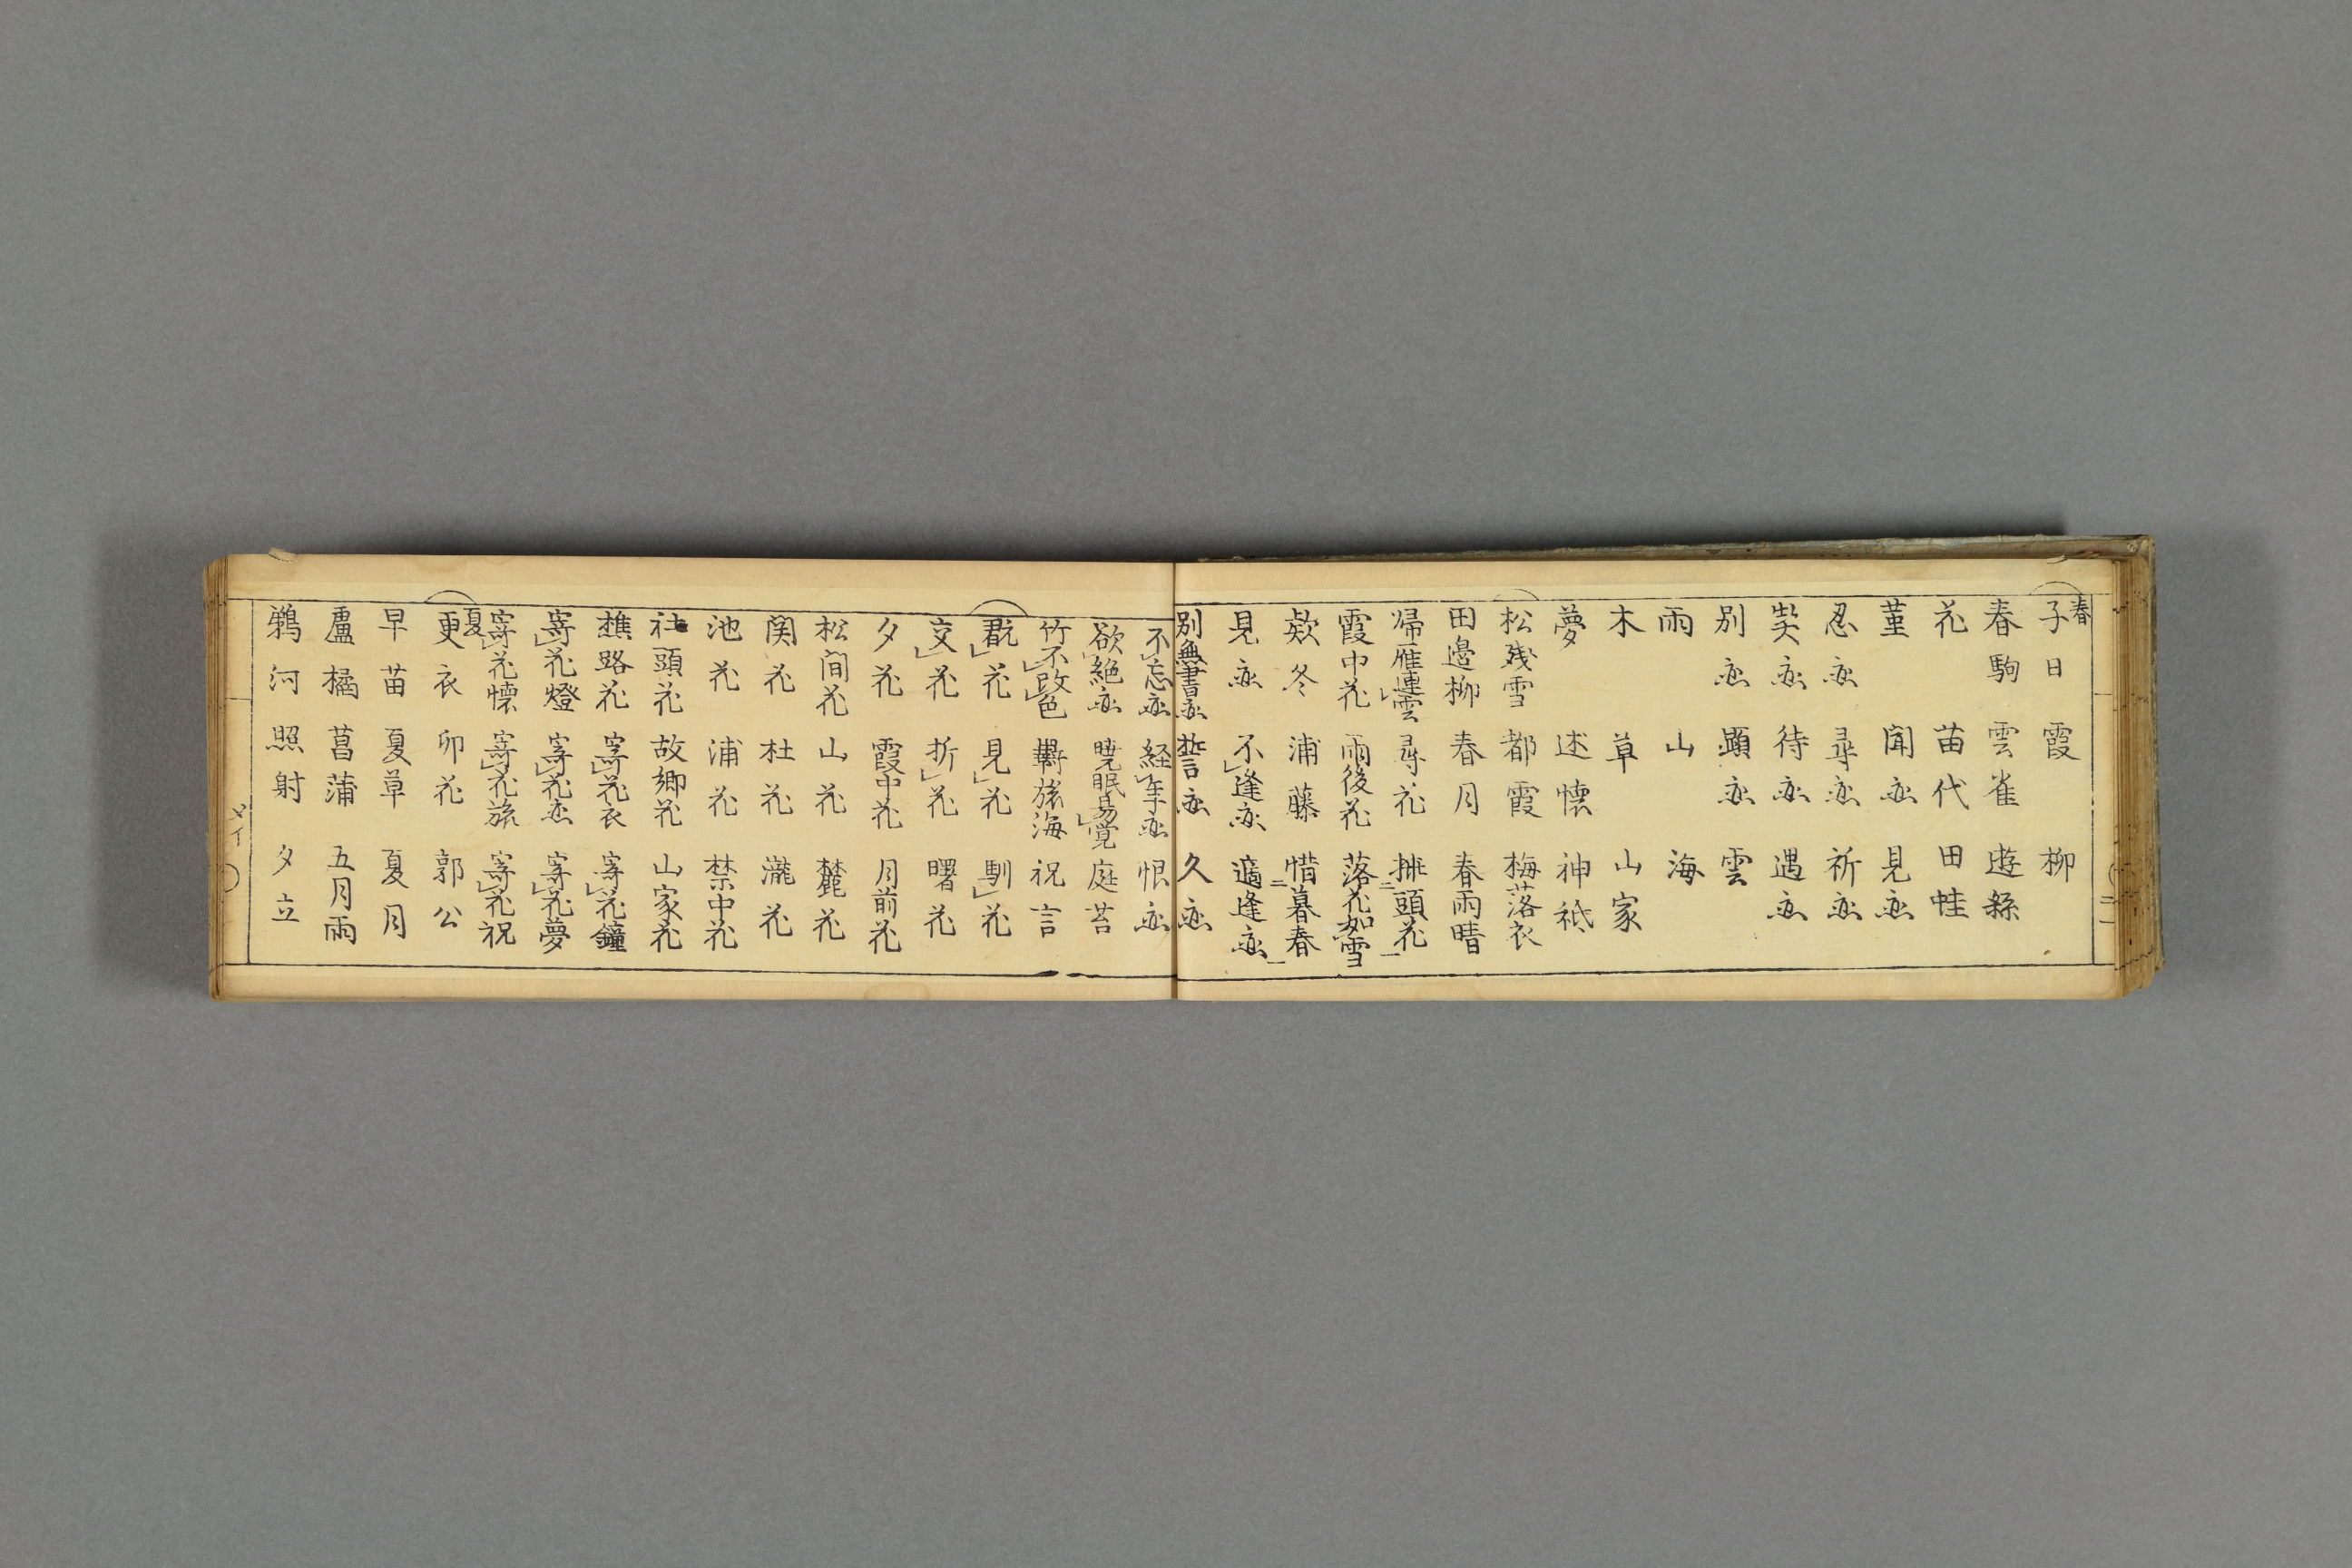 春
子日 霞 柳
春駒 雲雀 遊絲
花 苗代 田蛙
菫 聞恋 見恋
忍恋 尋恋 祈恋
契恋 待恋 遇恋
別恋 顕恋 雲
雨 山 海
木 草 山家
夢 述懐 神祇
松残雪 都霞 梅落衣
田邉柳 春月 春雨晴
帰雁連雲 尋花 挿頭花
霞中花 雨後花 落花如雪
欵冬 浦藤 惜暮春
見恋 不逢恋 適逢恋
別無書恋 誓恋 久恋
不忘恋 経年恋 恨恋
欲絶恋 曉眠易覚 庭苔
竹不改色 羇旅海 祝言
翫花 見花 馴花
交花 折花 曙花
夕花 霞中花 月前花
松間花 山花 麓花
関花 杜花 瀧花
池花 浦花 禁中花
社頭花 故郷花 山家花
樵路花 寄花衣 寄花鐘
寄花燈 寄花恋 寄花夢
寄花懐 寄花旅 寄花祝
夏
更衣 卯花 郭公
早苗 夏草 夏月
盧橘 菖蒲 五月雨
鵜河 照射 夕立
メイ